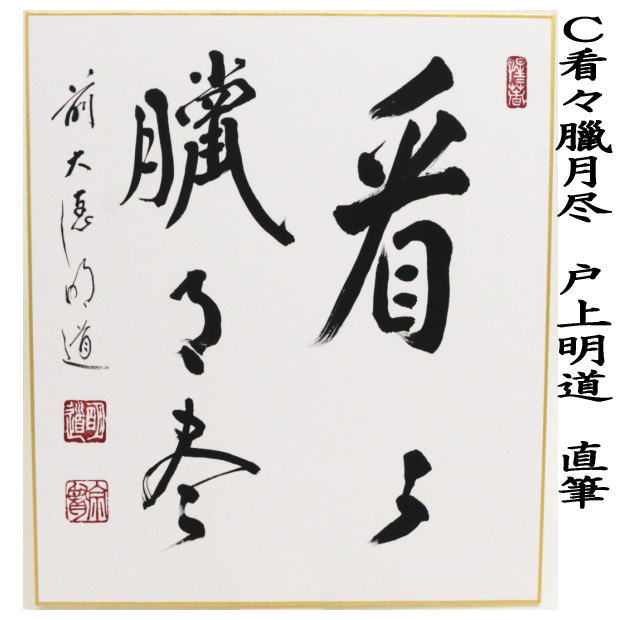 C看々臘月尽　戸上明道　直筆
看々
臘月尽
前大徳明道